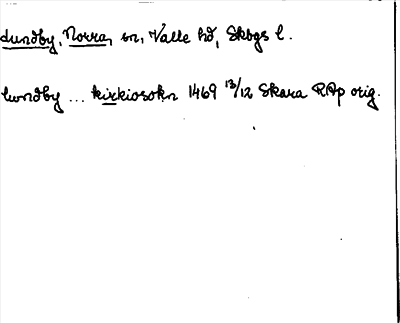 Lundby, Norra, sn, Valle hd, Skbgs l.
lwndby ... kirkiosokn 1469 13/12 Skara RAp orig.